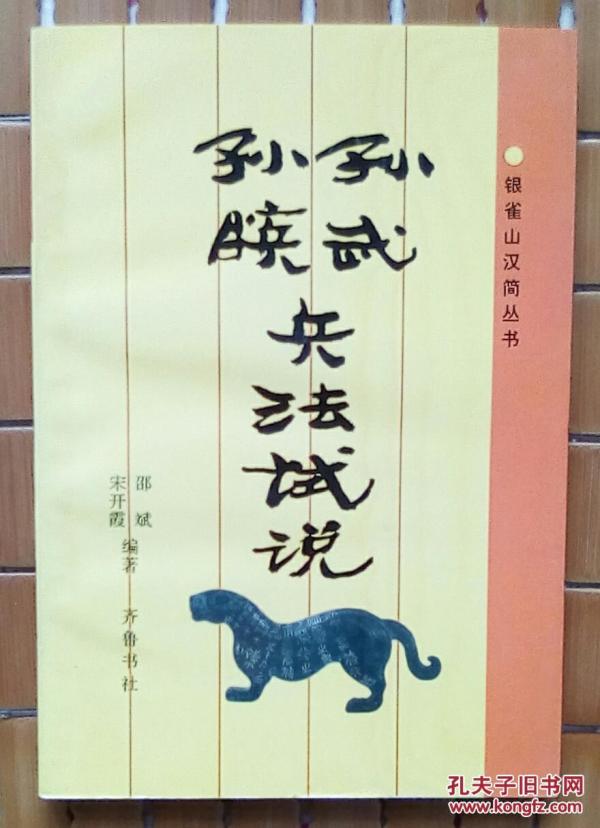 银雀山汉简丛书
孙武
孙膑
兵法试说
邵斌
宋开霞
编著
齐鲁书社
孔夫子旧书网
www.kongfz.com